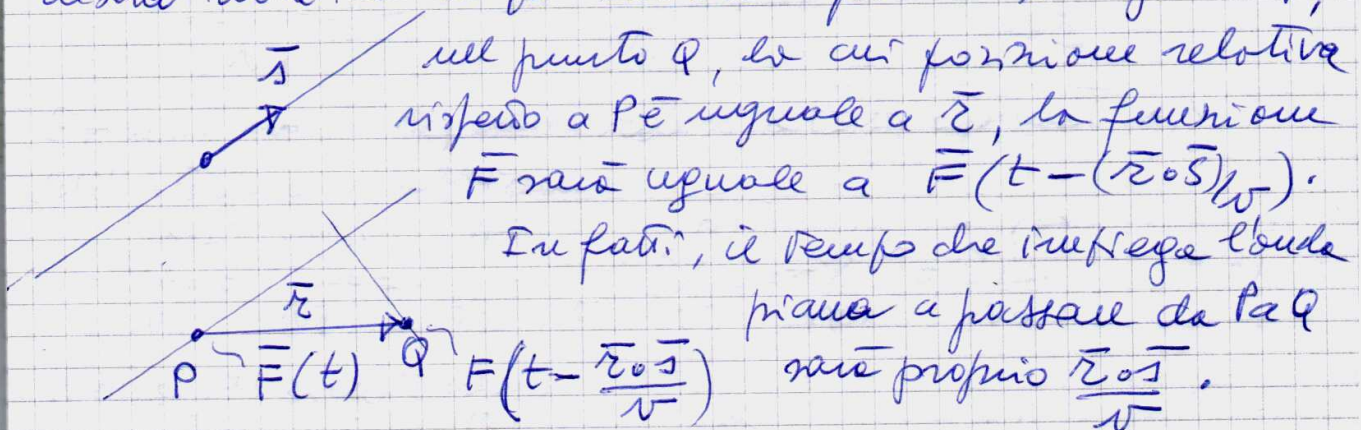 s̄
nel punto Q, la cui posizione relativa
rispetto a P è uguale a r̄, la funzione
F̄ sarà uguale a F̄(t-(r̄∘s̄)/v).
Infatti, il tempo che impiega l'onda
r̄
piana a passare da P a Q
P F̄(t) Q F(t - r̄∘s̄/v) sarà proprio r̄∘s̄/v.